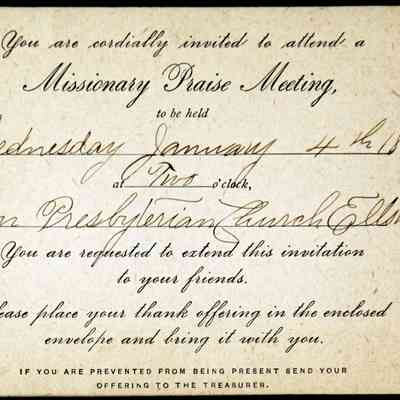 You are cordially invited to attend a
Missionary Praise Meeting,
to be held
ednesday January 4th 18
at Two o'clock,
n Presbyterian Church Ells
You are requested to extend this invitation
to your friends.
ease place your thank offering in the enclosed
envelope and bring it with you.
IF YOU ARE PREVENTED FROM BEING PRESENT SEND YOUR
OFFERING TO THE TREASURER.